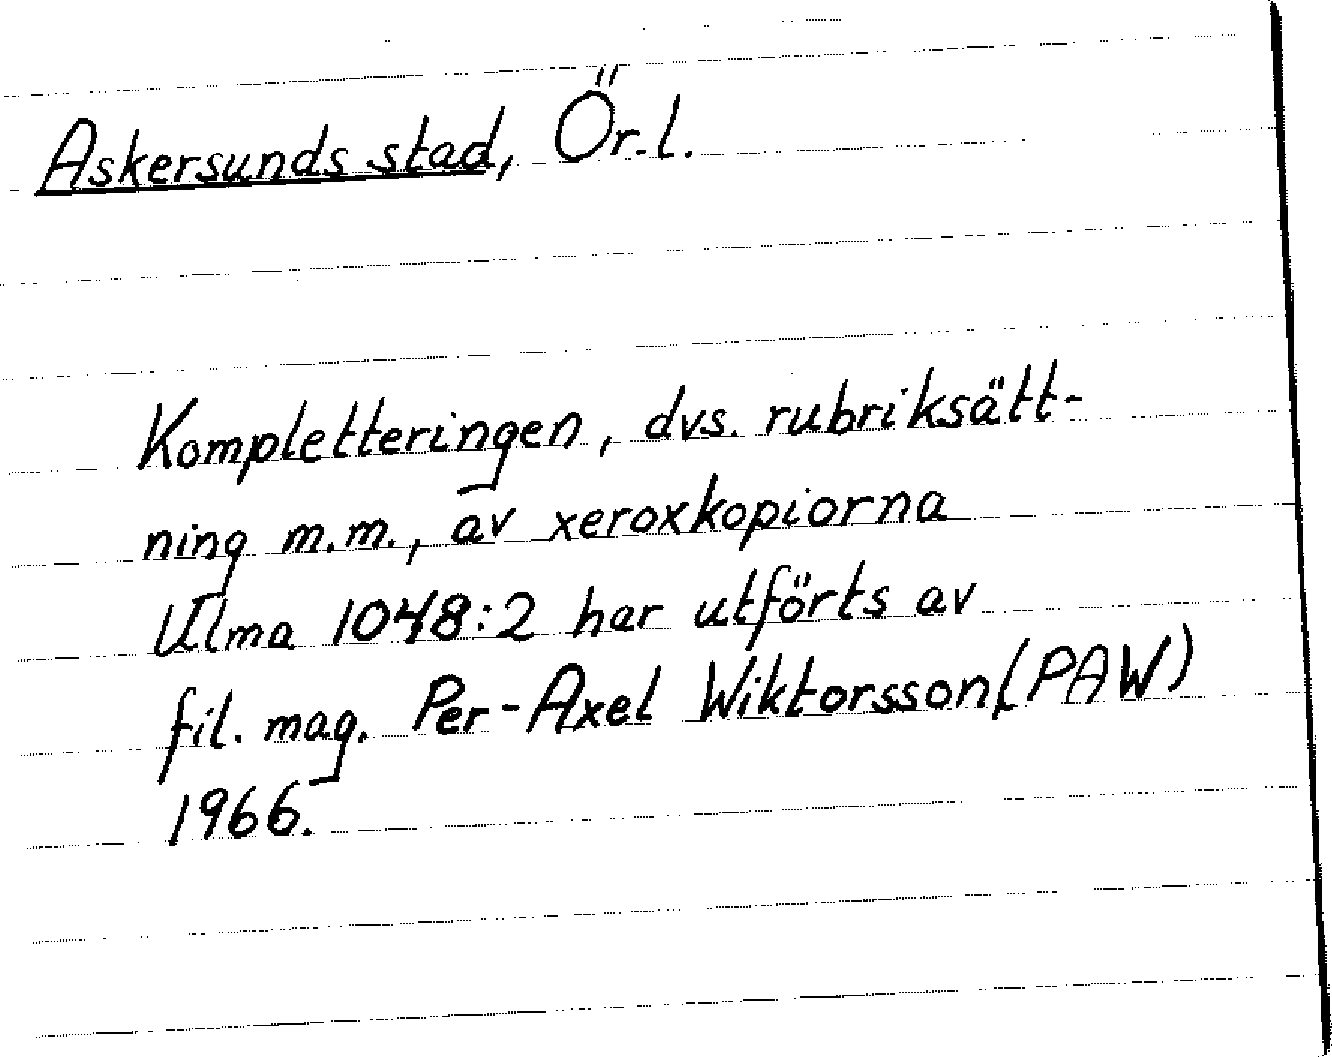 Askersunds stad, Ör.l.
Kompletteringen, dvs. rubriksätt-
ning m.m., av xeroxkopiorna
Ulma 1048:2 har utförts av
fil. mag. Per-Axel Wiktorsson (PAW)
1966.